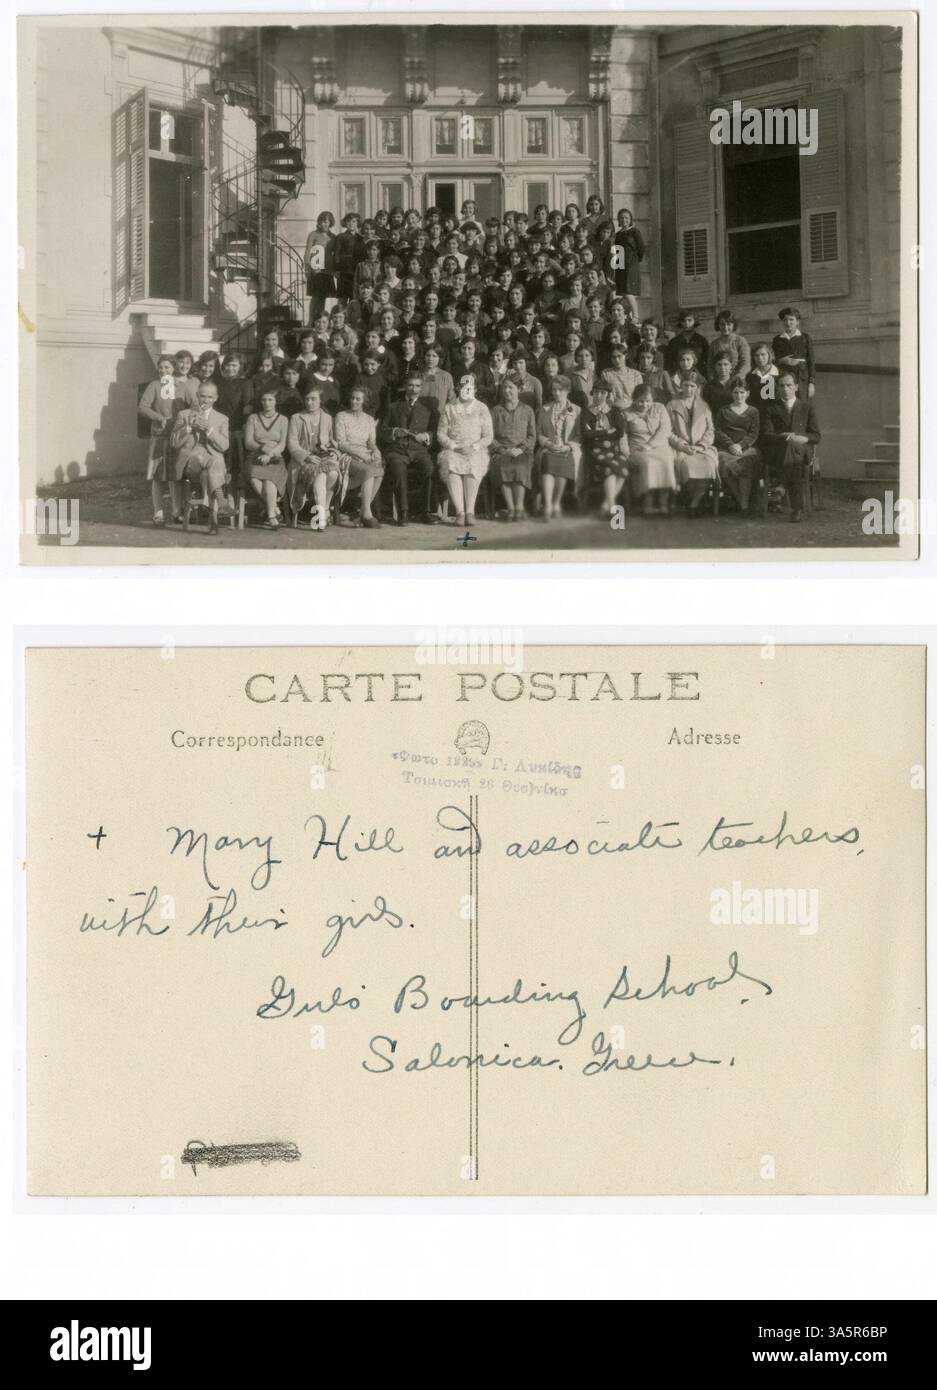 alamy
alamy
+
alamy
CARTE POSTALE
Correspondance
Adresse
«Φωτο 1225» Γ: Λυκίδης
Τσιμισκή 26 Θεσ)νίκα
+ Mary Hill and associate teachers,
with their girls.
Girls' Boarding School,
Salonica. Greece.
alamy
a
a
a
a
alamy
Image ID: 3A5R6BP
www.alamy.com